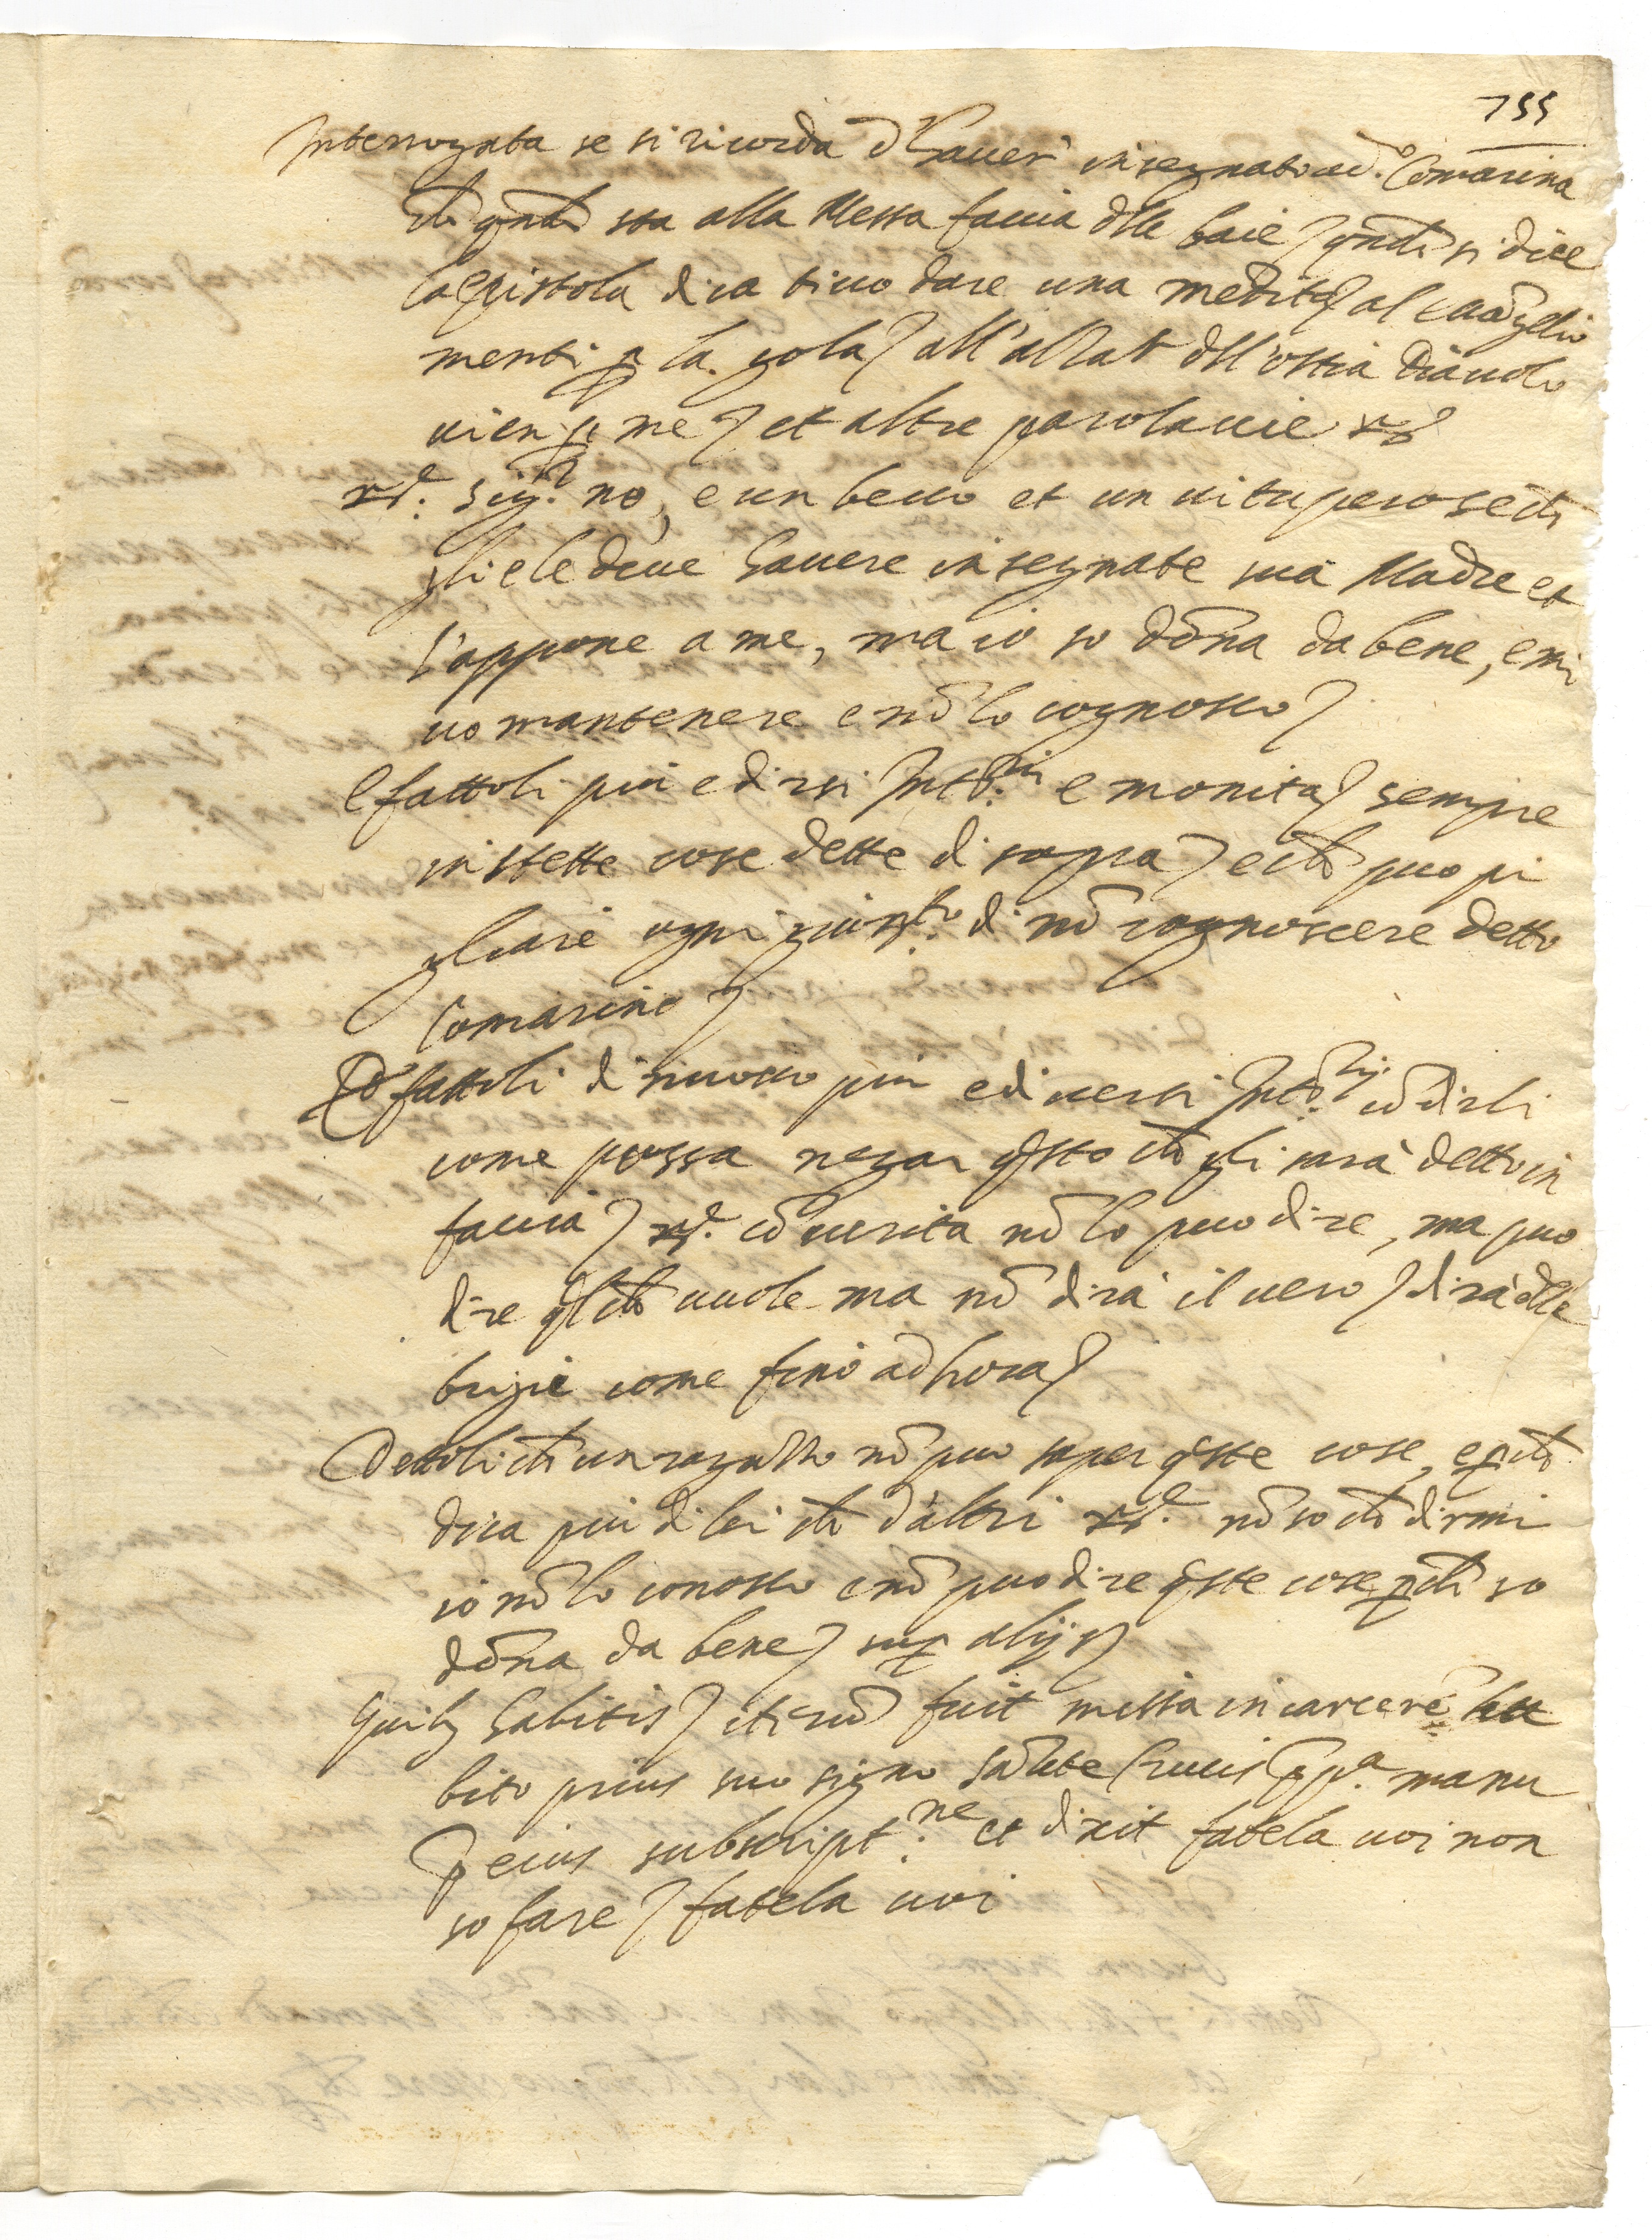 755
Interrogata se si ricorda d'hauer insegnato a d.o Comarino
ch qndo sta alla Messa faccia dlle baie, qndo si dice
la epistola dica ti uo dare una medita, al euãgelio
menti p la gola, all'alzar dll'ostia Diauolo
uien p me, et altre parolaccie
rd. Sig.r no, e un becco et un uituperoso e ch
gliele deue hauere insegnate sua Madre et
l'appone a me, ma io so dõna da bene, e mi
uo mantenere e nõ lo cognosco
E fattoli piu e diuersi Int.ri e monita, sempre
in stette cose dette di sopra, e ch puo pi
gliare ogni giuram.to di nõ cognoscere detto
Comarino
Et fattoli di nuouo piu e diuersi Int.rij cõ dirli
come possa negar qsto ch gli sarà detto in
faccia, rd. cõ uerita nõ lo puo dire, ma puo
dire ql ch uuole ma nõ dirà il uero, dirà dlle
bugie come fino ad hora
Dettoli ch un ragazzo nõ puo saper qste cose, e p ch
dica piu di lei ch d'altri rd. nõ so ch dirmi
io nõ lo conosco e nõ puo dire qste cose p ch so
dõna da bene, sup alijs
Quib habitis, iterũ fuit missa in carcere ha
bito prius suo signo Sãtae Crucis pp.a manu
p eius subscript.ne et dixit fatela uoi non
so fare, fatela uoi